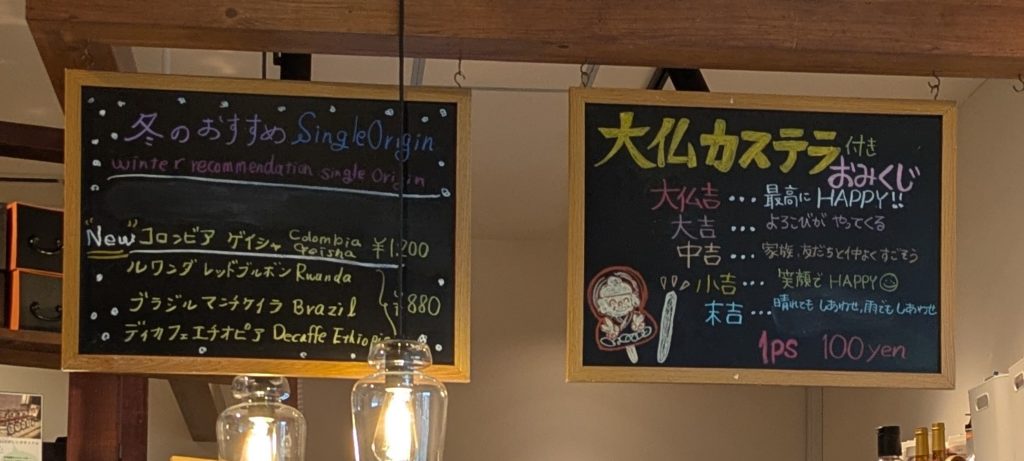 冬のおすすめ Single Origin
winter recommendation single Origin
"New" コロンビア ゲイシャ Colombia Geisha ¥1,200
ルワンダ レッドブルボン Rwanda
ブラジル マンテケイラ Brazil ¥880
ディカフェ エチオピア Decaffe Ethiopia
大仏カステラ付き
おみくじ
大仏吉...最高に HAPPY!!
大吉...よろこびが やってくる
中吉...家族、友だちと仲よくすごそう
小吉...笑顔で HAPPY☺
末吉...晴れても しあわせ、雨でも しあわせ
1ps 100yen